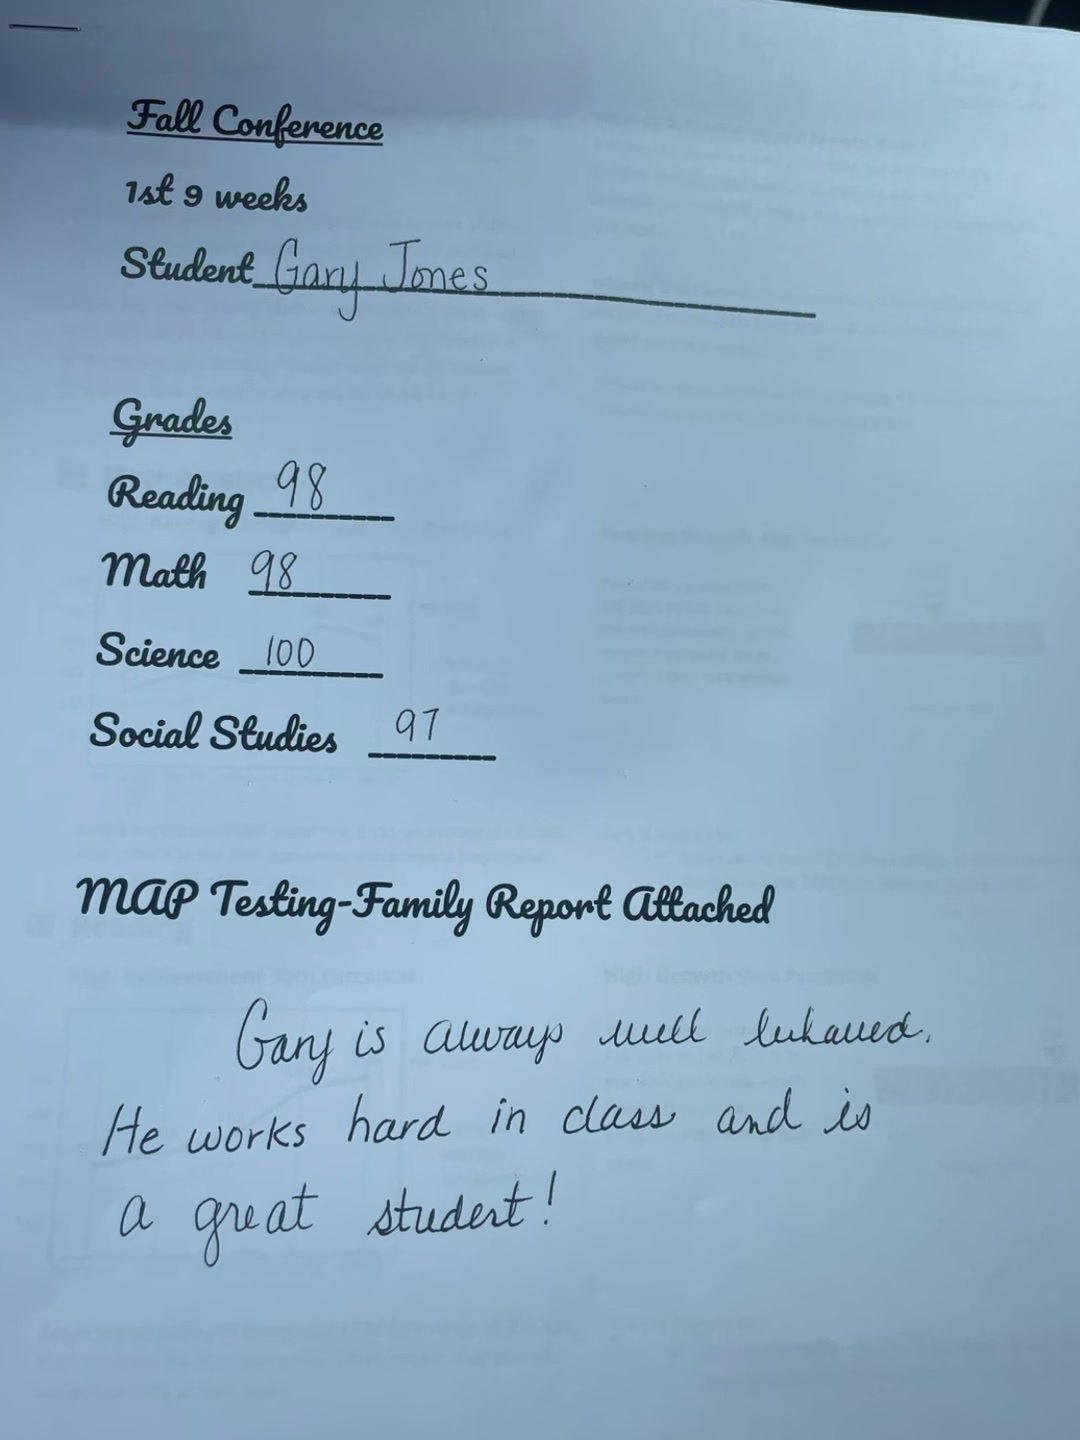 Fall Conference
1st 9 weeks
Student Gary Jones
Grades
Reading 98
Math 98
Science 100
Social Studies 97
MAP Testing-Family Report Attached
Gary is always well behaved.
He works hard in class and is
a great student!